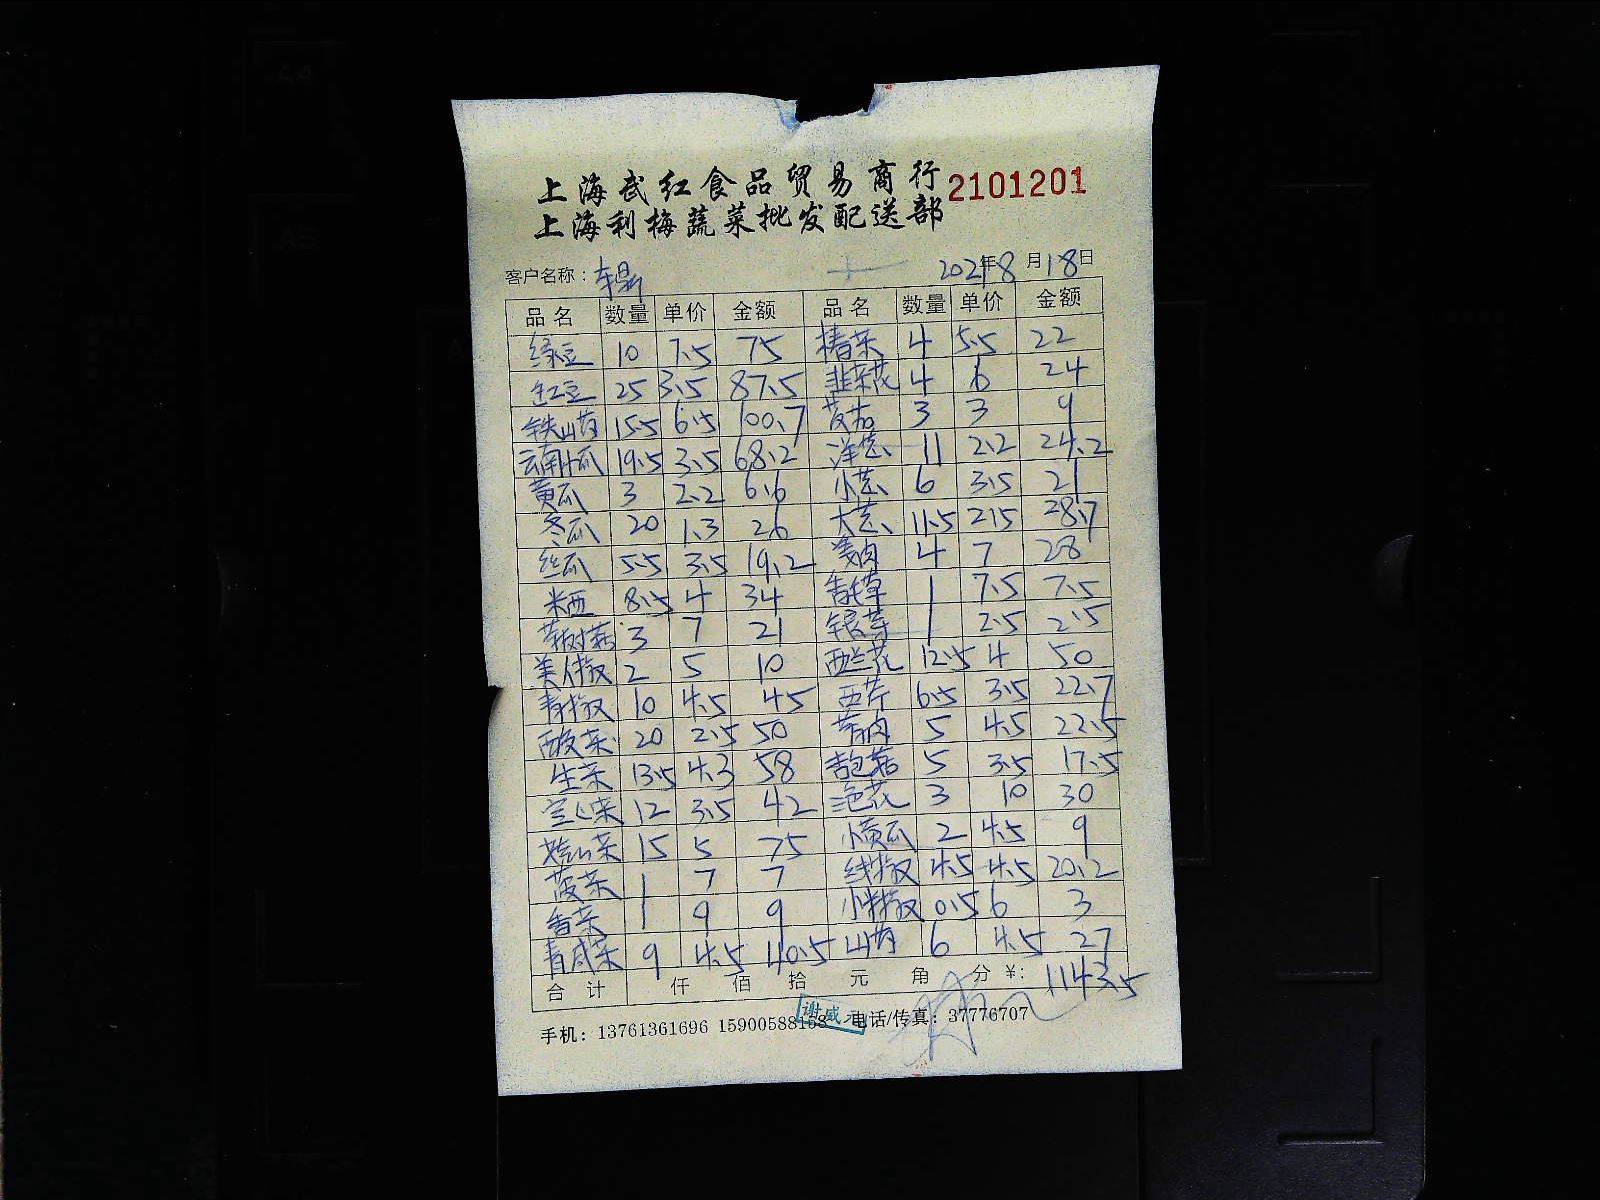 上海武红食品贸易商行 2101201
上海利梅蔬菜批发配送部
客户名称： 2021年8月18日
品名 数量 单价 金额 品名 数量 单价 金额
绿豆 10 7.5 75 4 5.5 22
红豆 25 3.5 87.5 韭菜花 4 6 24
铁山药 15.5 6.5 100.7 茭茄 3 3 9
云南小瓜 19.5 3.5 68.2 洋葱 11 2.2 24.2
黄瓜 3 2.2 6.6 小葱 6 3.5 21
冬瓜 20 1.3 26 大葱 11.5 2.5 28.7
丝瓜 5.5 3.5 19.2 姜肉 4 7 28
米西 8.5 4 34 香毛草 1 7.5 7.5
茶树菇 3 7 21 银芽 1 2.5 2.5
美人椒 2 5 10 西兰花 12.5 4 50
青椒 10 4.5 45 西芹 6.5 3.5 22.7
酸菜 20 2.5 50 5 4.5 22.5
生菜 13.5 4.3 58 杏包菇 5 3.5 17.5
空心菜 12 3.5 42 3 10 30
15 5 75 小黄瓜 2 4.5 9
菠菜 1 7 7 线椒 4.5 4.5 20.2
香菜 1 9 9 小米椒 0.5 6 3
青咸菜 9 4.5 40.5 山药 6 4.5 27
合计 仟 佰 拾 元 角 分 ¥: 1143.5
手机：13761361696 15900588158 电话/传真：37776707
谢盛元